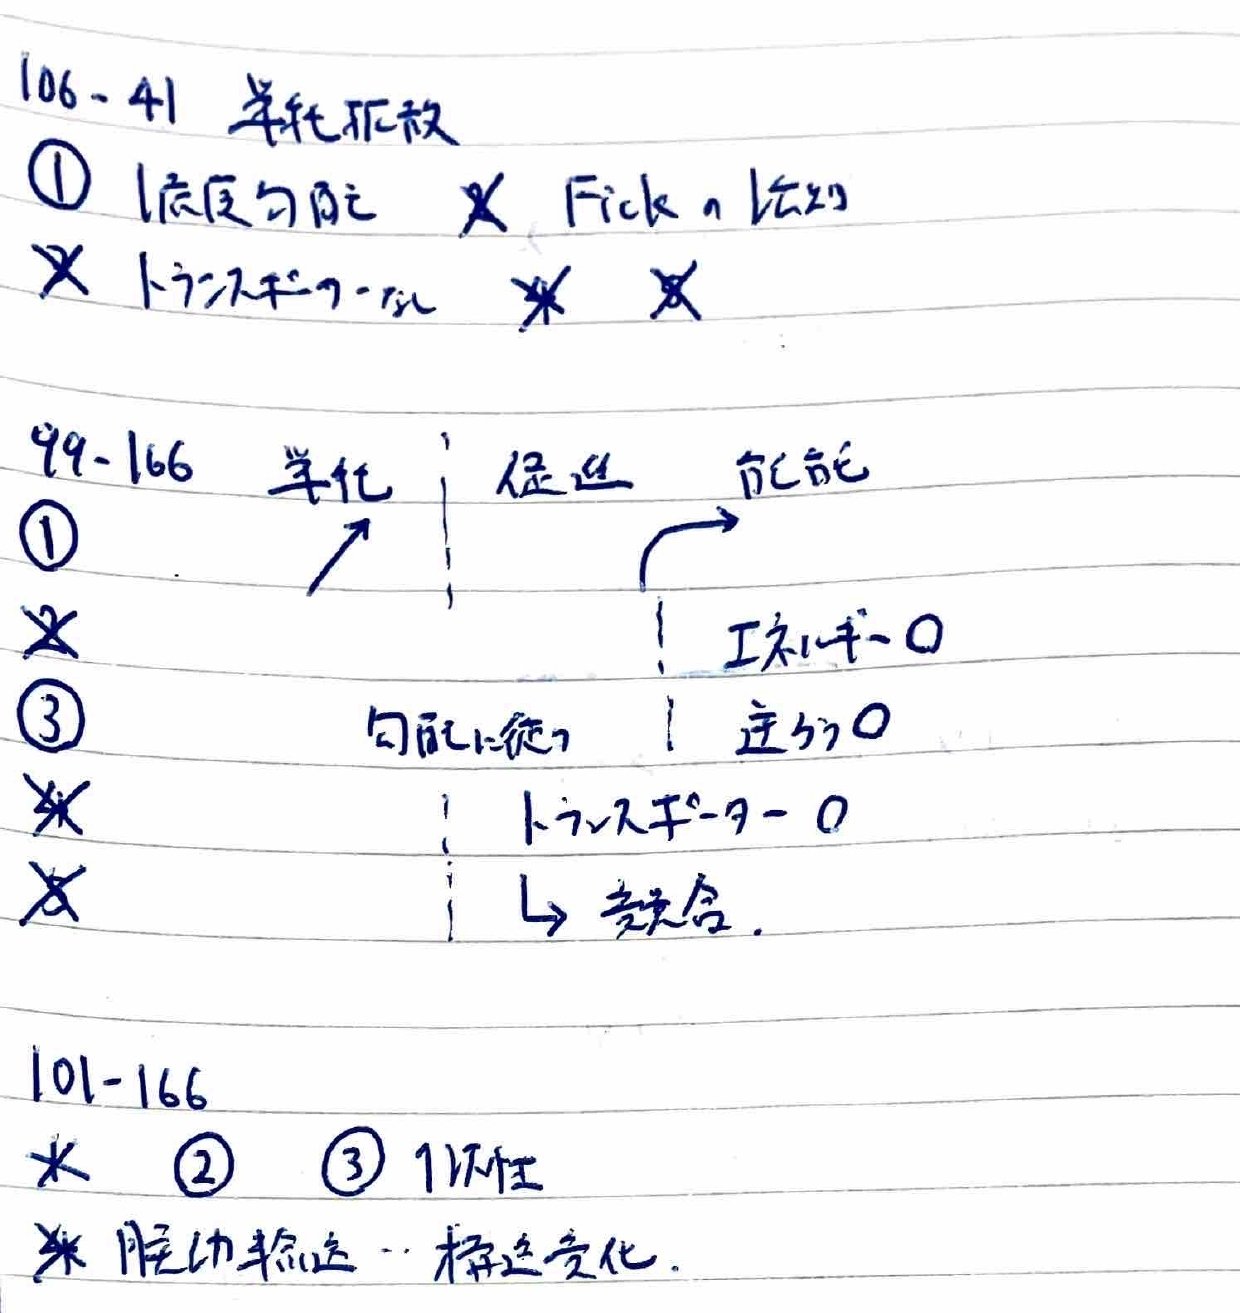 106-41 単純拡散
① 濃度勾配 2 Fickの法則
2 トランスポーターなし 4 5
99-166 単純 促進 能動
①
2
エネルギー○
③ 勾配に従う 逆らう○
4 トランスポーター○
5 ↳ 競合.
101-166
1 ② ③
4 膜動輸送‥構造変化.